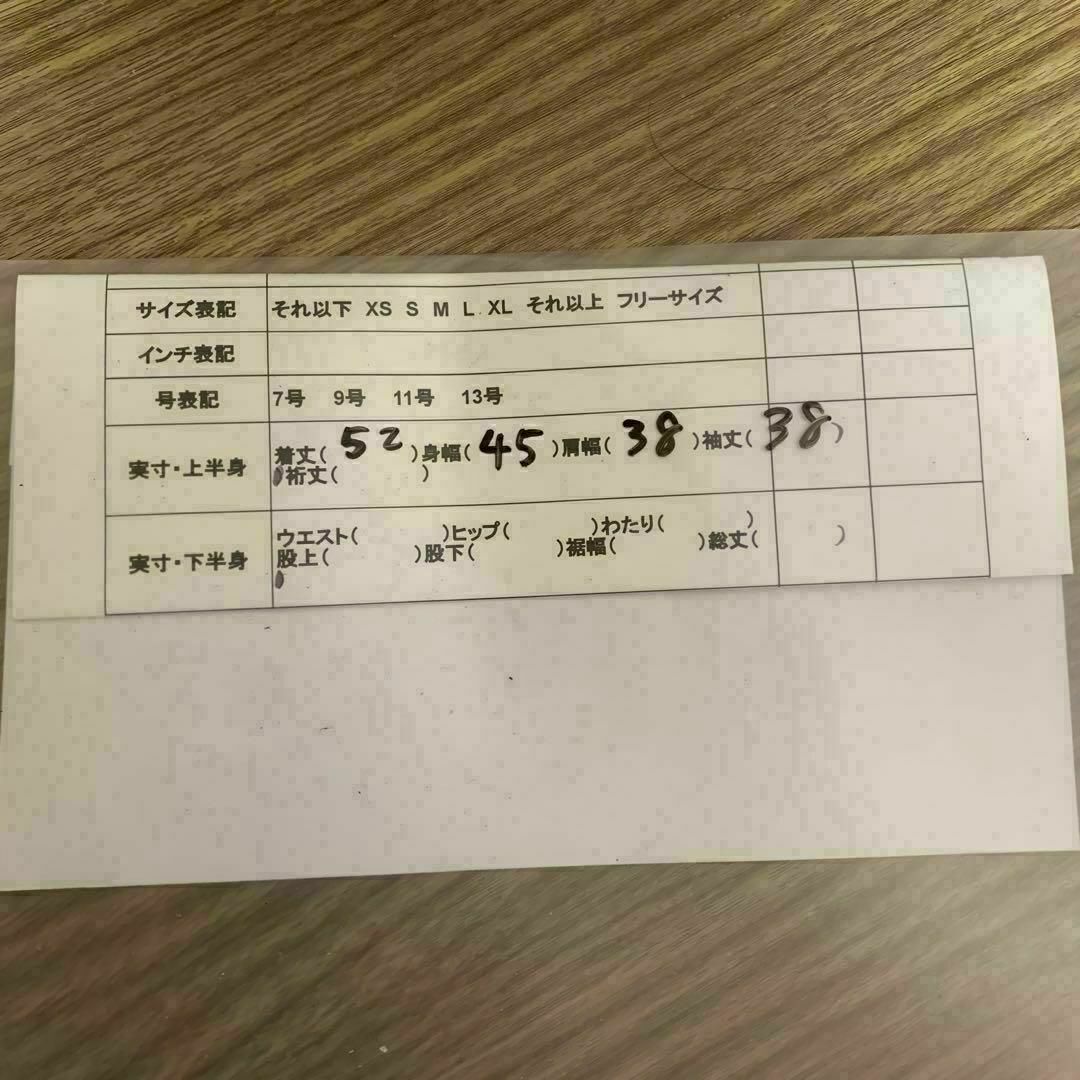 サイズ表記 それ以下 XS S M L XL それ以上 フリーサイズ
インチ表記
号表記 7号 9号 11号 13号
実寸・上半身 着丈( 52 )身幅( 45 )肩幅( 38 )袖丈( 38 )
裄丈( )
実寸・下半身 ウエスト( )ヒップ( )わたり( )
股上( )股下( )裾幅( )総丈( )